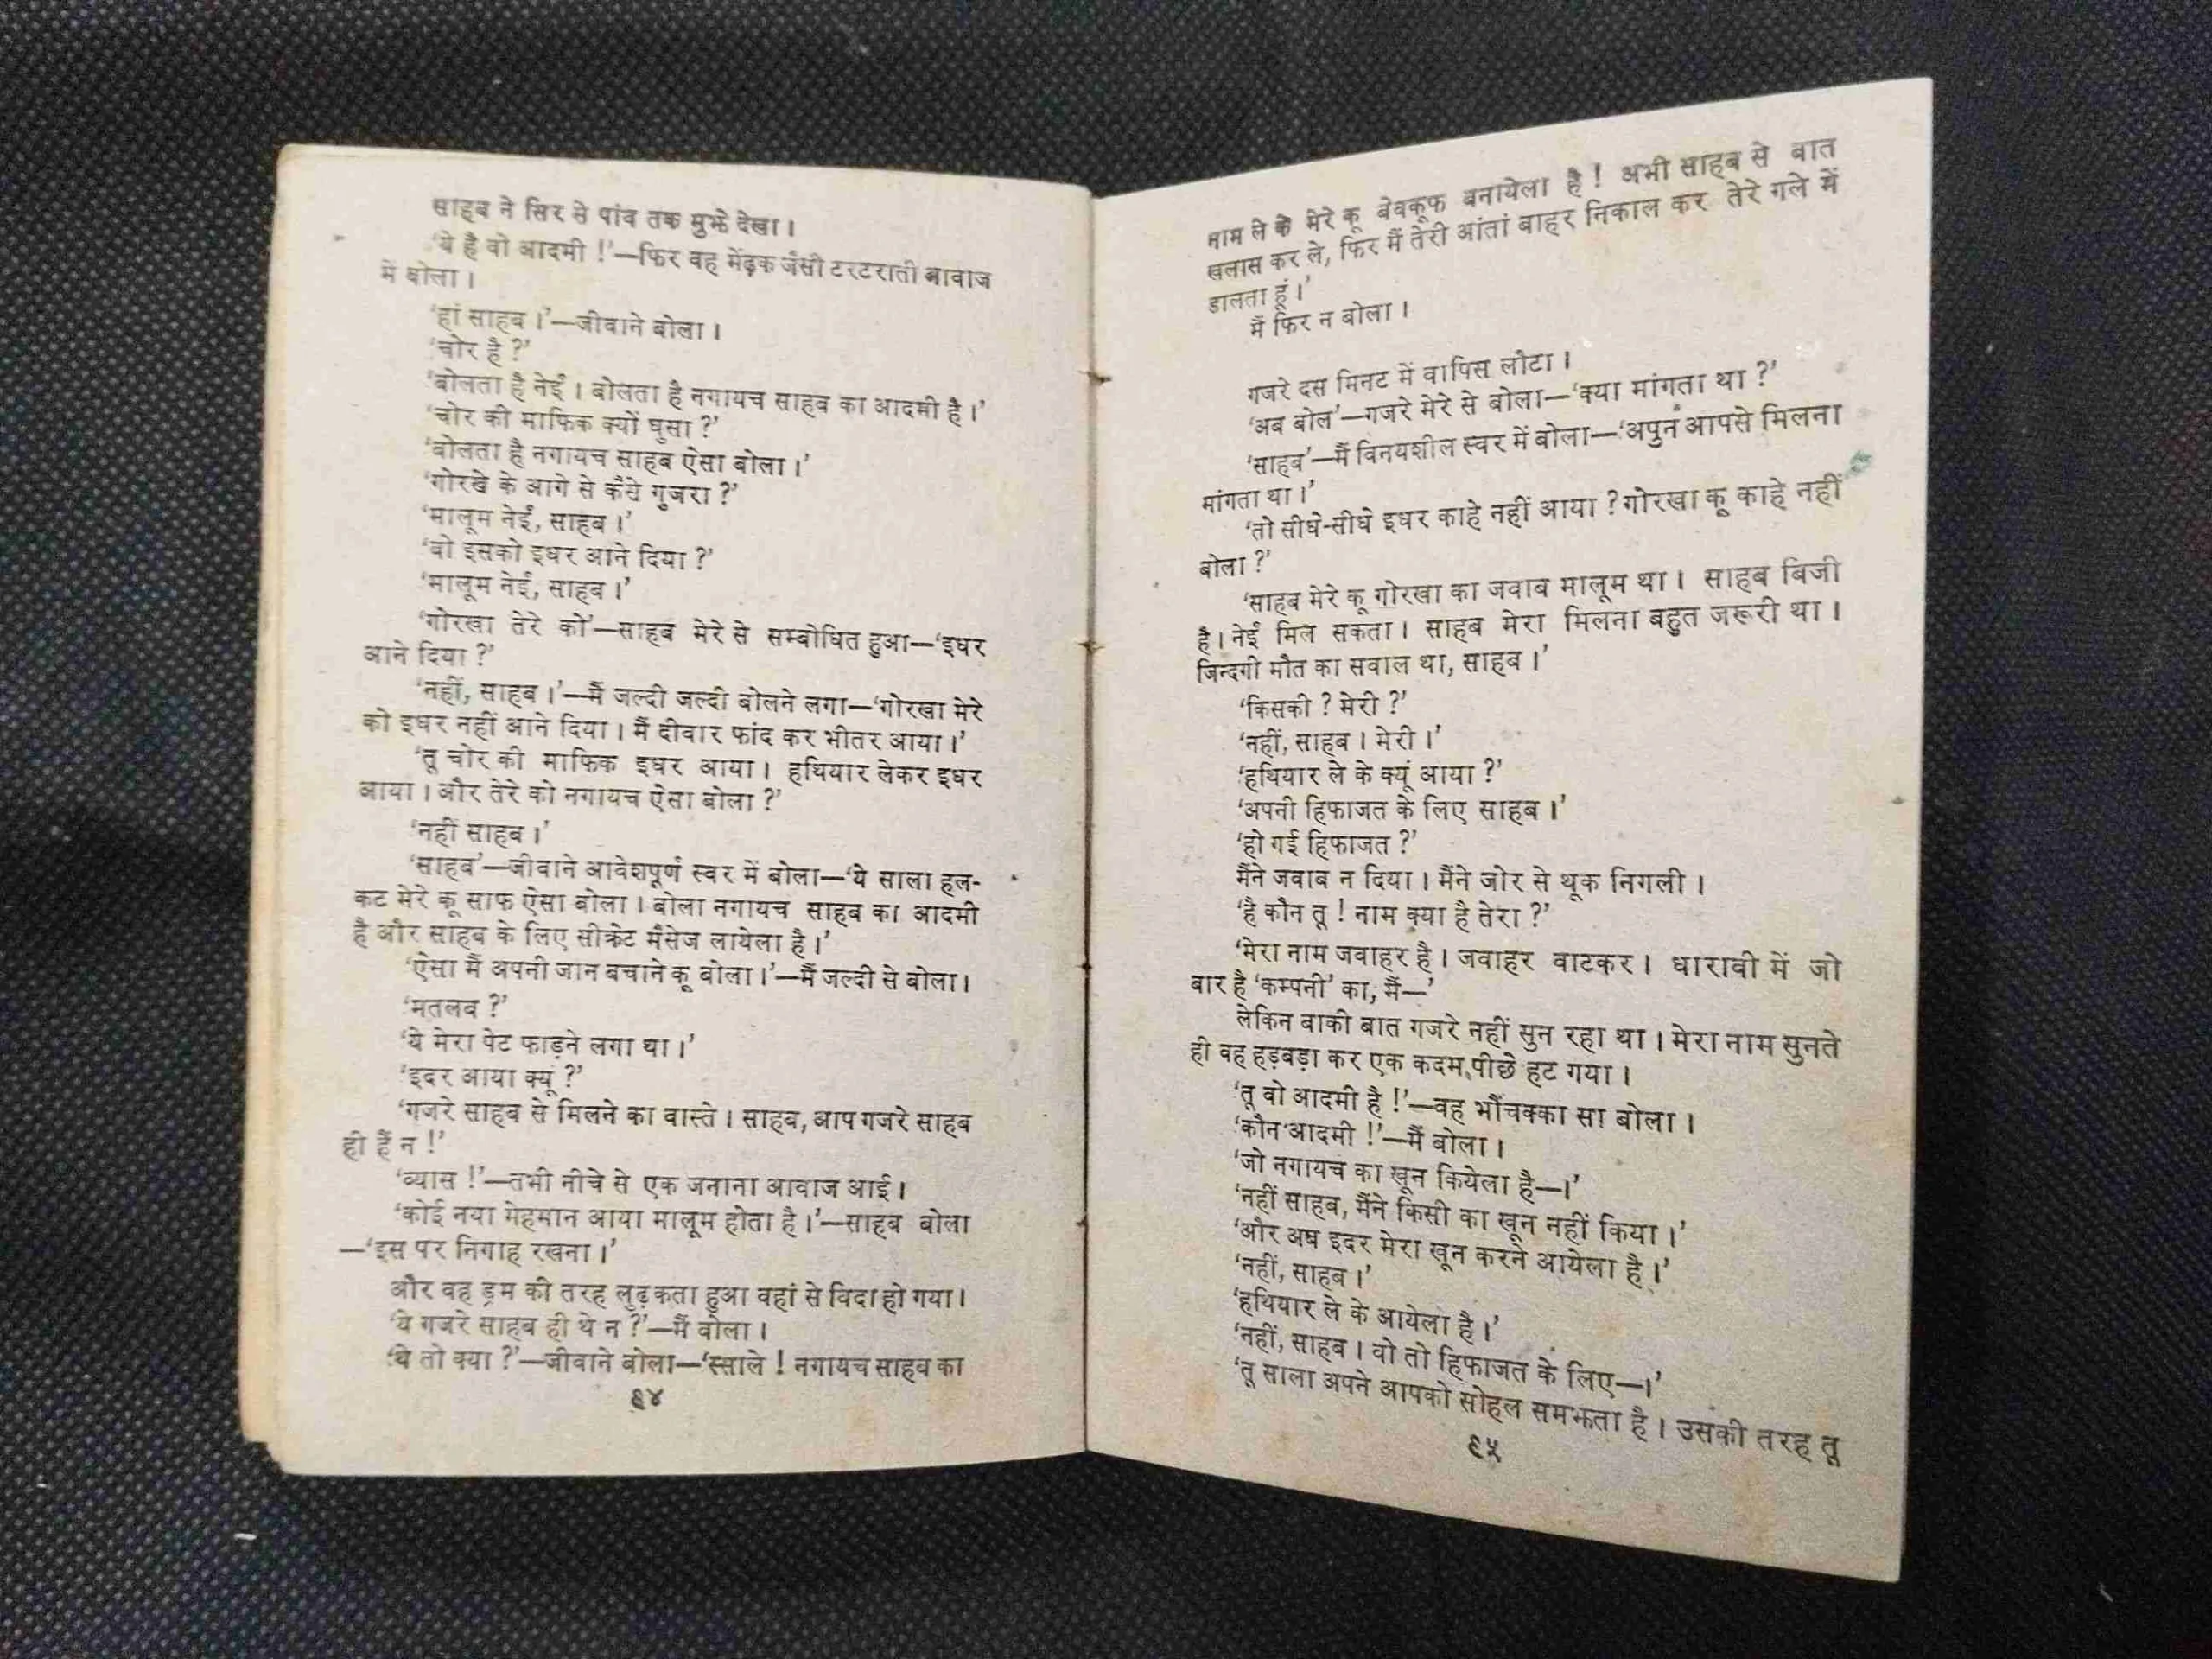 साहब ने सिर से पांव तक मुझे देखा ।
‘ये है वो आदमी !’—फिर वह मेंढ़क जैसी टरटराती आवाज
में बोला ।
‘हां साहब ।’—जीवाने बोला ।
‘चोर है ?’
‘बोलता है नेईं । बोलता है नगायच साहब का आदमी है ।’
‘चोर की माफिक क्यों घुसा ?’
‘बोलता है नगायच साहब ऐसा बोला ।’
‘गोरखे के आगे से कैसे गुजरा ?’
‘मालूम नेईं, साहब ।’
‘वो इसको इधर आने दिया ?’
‘मालूम नेईं, साहब ।’
‘गोरखा तेरे को’—साहब मेरे से सम्बोधित हुआ—‘इधर
आने दिया ?’
‘नहीं, साहब ।’—मैं जल्दी जल्दी बोलने लगा—‘गोरखा मेरे
को इधर नहीं आने दिया । मैं दीवार फांद कर भीतर आया ।’
‘तू चोर की माफिक इधर आया । हथियार लेकर इधर
आया । और तेरे को नगायच ऐसा बोला ?’
‘नहीं साहब ।’
‘साहब’—जीवाने आवेशपूर्ण स्वर में बोला—‘ये साला हल-
कट मेरे कू साफ ऐसा बोला । बोला नगायच साहब का आदमी
है और साहब के लिए सीक्रेट मैसेज लायेला है ।’
‘ऐसा मैं अपनी जान बचाने कू बोला ।’—मैं जल्दी से बोला ।
‘मतलब ?’
‘ये मेरा पेट फाड़ने लगा था ।’
‘इदर आया क्यूं ?’
‘गजरे साहब से मिलने का वास्ते । साहब, आप गजरे साहब
ही हैं न !’
‘व्यास !’—तभी नीचे से एक जनाना आवाज आई ।
‘कोई नया मेहमान आया मालूम होता है ।’—साहब बोला
—‘इस पर निगाह रखना ।’
और वह ड्रम की तरह लुढ़कता हुआ वहां से विदा हो गया ।
‘ये गजरे साहब ही थे न ?’—मैं बोला ।
‘थे तो क्या ?’—जीवाने बोला—‘स्साले ! नगायच साहब का
६४
नाम ले के मेरे कू बेवकूफ बनायेला है ! अभी साहब से बात
खलास कर ले, फिर मैं तेरी आंतां बाहर निकाल कर तेरे गले में
डालता हूं ।’
मैं फिर न बोला ।
गजरे दस मिनट में वापिस लौटा ।
‘अब बोल’—गजरे मेरे से बोला—‘क्या मांगता था ?’
‘साहब’—मैं विनयशील स्वर में बोला—‘अपुन आपसे मिलना
मांगता था ।’
‘तो सीधे-सीधे इधर काहे नहीं आया ? गोरखा कू काहे नहीं
बोला ?’
‘साहब मेरे कू गोरखा का जवाब मालूम था । साहब बिजी
है । नेईं मिल सकता । साहब मेरा मिलना बहुत जरूरी था ।
जिन्दगी मौत का सवाल था, साहब ।’
‘किसकी ? मेरी ?’
‘नहीं, साहब । मेरी ।’
‘हथियार ले के क्यूं आया ?’
‘अपनी हिफाजत के लिए साहब ।’
‘हो गई हिफाजत ?’
मैंने जवाब न दिया । मैंने जोर से थूक निगली ।
‘है कौन तू ! नाम क्या है तेरा ?’
‘मेरा नाम जवाहर है । जवाहर वाटकर । धारावी में जो
बार है ‘कम्पनी’ का, मैं—’
लेकिन बाकी बात गजरे नहीं सुन रहा था । मेरा नाम सुनते
ही वह हड़बड़ा कर एक कदम पीछे हट गया ।
‘तू वो आदमी है !’—वह भौंचक्का सा बोला ।
‘कौन आदमी !’—मैं बोला ।
‘जो नगायच का खून कियेला है—।’
‘नहीं साहब, मैंने किसी का खून नहीं किया ।’
‘और अब इदर मेरा खून करने आयेला है ।’
‘नहीं, साहब ।’
‘हथियार ले के आयेला है ।’
‘नहीं, साहब । वो तो हिफाजत के लिए—।’
‘तू साला अपने आपको सोहल समझता है । उसकी तरह तू
६५